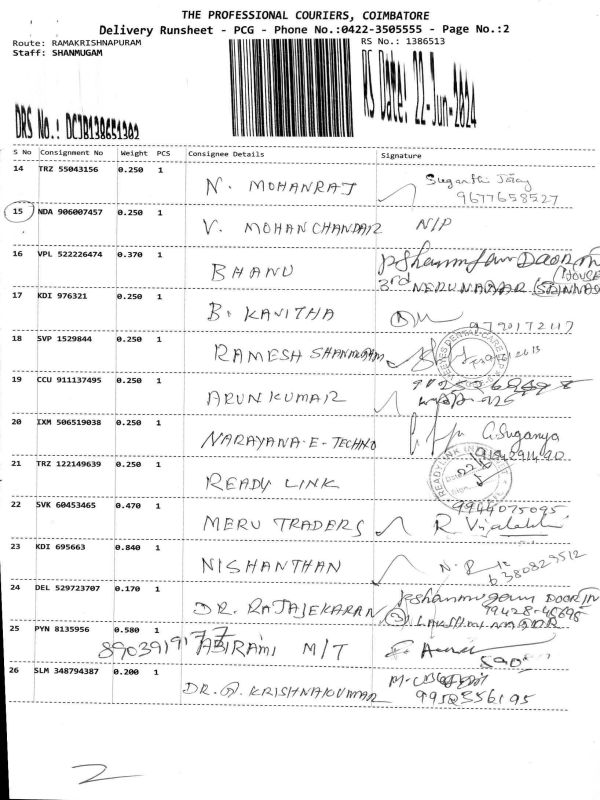 THE PROFESSIONAL COURIERS, COIMBATORE
Delivery Runsheet - PCG - Phone No.:0422-3505555 - Page No.:2
Route: RAMAKRISHNAPURAM
RS No.: 1386513
Staff: SHANMUGAM
RS Date: 22-Jun-2024
DRS No.: DCJB138651302
S No Consignment No Weight PCS Consignee Details Signature
14 TRZ 55043156 0.250 1 N. MOHANRAJ
9677658527
15 NDA 906007457 0.250 1 V. MOHANCHANDAR N/P
16 VPL 522226474 0.370 1 BHANU Pshanmugam DOOR IN
3rd NERU NAGAR
17 KDI 976321 0.250 1 B. KAVITHA
9790172117
18 SVP 1529844 0.250 1 RAMESH SHANMUGAM
19 CCU 911137495 0.250 1 ARUNKUMAR
20 IXM 506519038 0.250 1 NARAYANA-E-TECHNO G.Suganya
21 TRZ 122149639 0.250 1 READY LINK
22 SVK 60453465 0.470 1 MERU TRADERS 9944075095
23 KDI 695663 0.840 1 NISHANTHAN
6380823512
24 DEL 529723707 0.170 1 DR. RAJAJEKARAN Pshanmugam DOOR IN
25 PYN 8135956 0.580 1 8903919177 ABIRAMI M/T
26 SLM 348794387 0.200 1 DR. G. KRISHNAKUMAR
9952556195
2